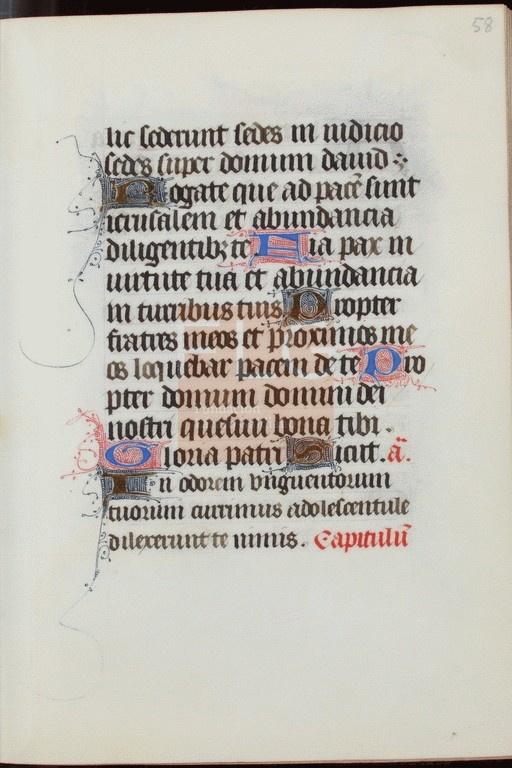 58
lic sederunt sedes in iudicio
sedes super domum dauid :
Rogate que ad pacē sunt
ierusalem et abundancia
diligentibꝫ te Fia pax in
uirtute tua et abundancia
in turribus tuis Propter
fratres meos et proximos me
os loquebar pacem de te Pro
pter domum domini dei
nostri quesiui bona tibi .
Gloria patri Sicut. a᷈.
In odorem unguentorum
tuorum currimus adolescentule
dilexerunt te nimis . Capitulū